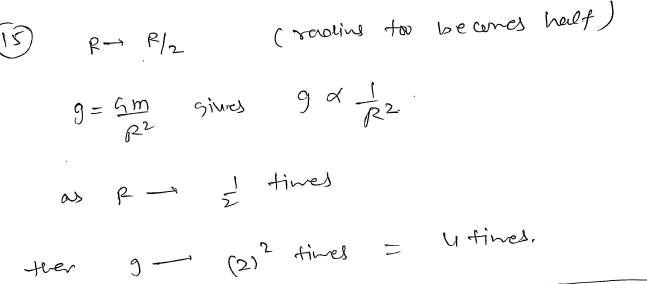 15 R → R/2 (radius too becomes half)
g = Gm/R² gives g ∝ 1/R²
as R → 1/2 times
then g — (2)² times = 4 times.